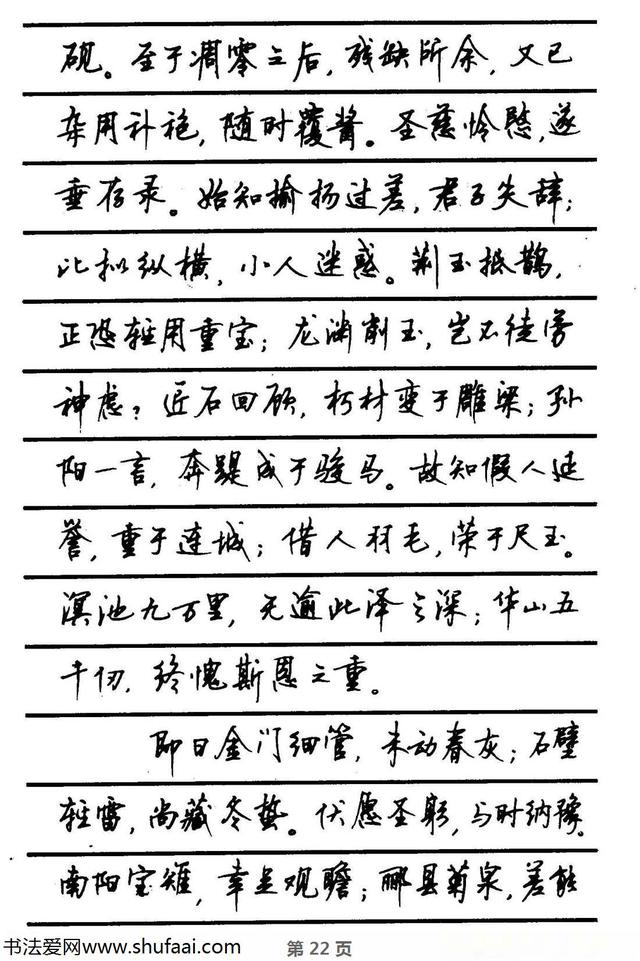 砚。至于凋零之后，残缺所余，又已
杂用补袍，随时覆酱。圣慈怜愍，遂
垂存录。始知揄扬过差，君子失辞；
比拟纵横，小人迷惑。荆玉抵鹊，
正恐轻用重宝；龙渊削玉，岂不徒劳
神虑？匠石回顾，朽材变于雕梁；孙
阳一言，奔踶成于骏马。故知假人延
誉，重于连城；借人羽毛，荣于尺玉。
溟池九万里，无逾此泽之深；华山五
千仞，终愧斯恩之重。
即日金门细管，未动春灰；石壁
轻雷，尚藏冬蛰。伏愿圣躬，与时纳豫。
南阳宝雉，幸足观瞻；郦县菊泉，差能
书法爱网www.shufaai.com
第 22 页